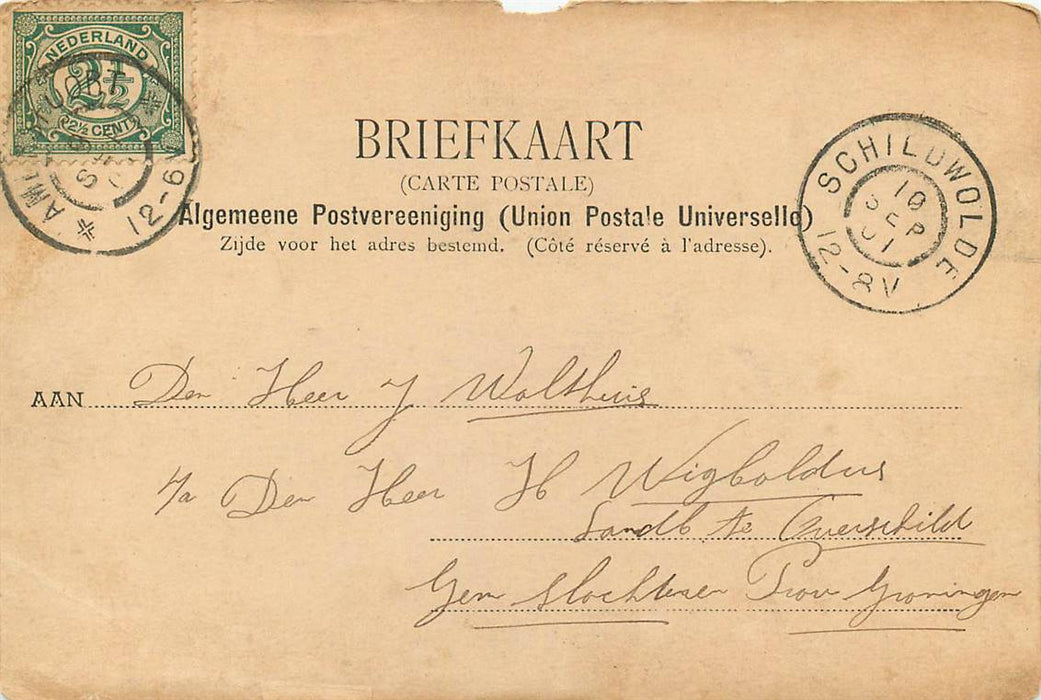 NEDERLAND
2½
2½ CENT
12-6V
BRIEFKAART
(CARTE POSTALE)
Algemeene Postvereeniging (Union Postale Universelle)
Zijde voor het adres bestemd. (Côté réservé à l'adresse).
SCHILDWOLDE
10
SEP
01
12-8V
AAN Den Heer J Walthuis
p/a Den Heer H Wigboldus
Landb. te Overschild
Gem Slochteren Prov Groningen